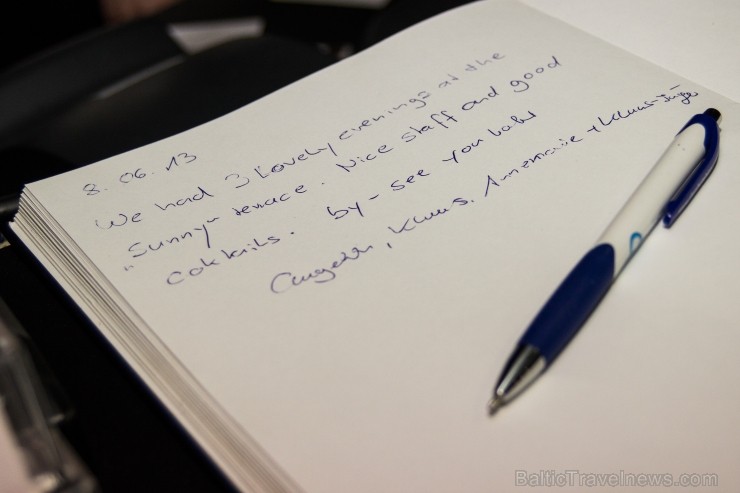 8. 06. 13
We had 3 lovely evenings at the
"Sunny" terrace. Nice staff and good
coktails. by - see you
Klaus. Annemarie + Klaus-
BalticTravelnews.com